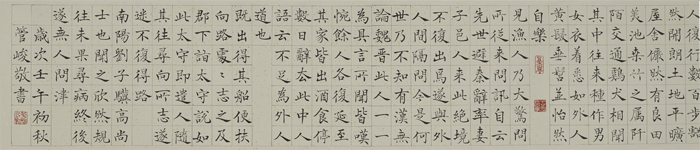 行數百步豁
開朗土地平曠
屋舍儼然有良田
美池桑竹之屬阡
陌交通鷄犬相聞
其中往來種作男
女衣着悉如外人
黃髮垂髫並怡然
自樂
見漁人乃大驚問
所從來問訊自云
先世避秦亂率妻
子邑人來此絕境
不復出焉遂與外
人間隔問今是何
世乃不知有漢無
論魏晉此人一一
為具言所聞皆嘆
惋餘人各復延至
其家皆出酒食停
數日辭去此中人
語云不足為外人
道也
既出得其船便扶
向路處々志之及
郡下詣太守說如
此太守即遣人隨
其往尋向所志遂
迷不復得路
南陽劉子驥高尚
士也聞之欣然規
往未果尋病終後
遂無人問津
歲次壬午初秋
管峻敬書